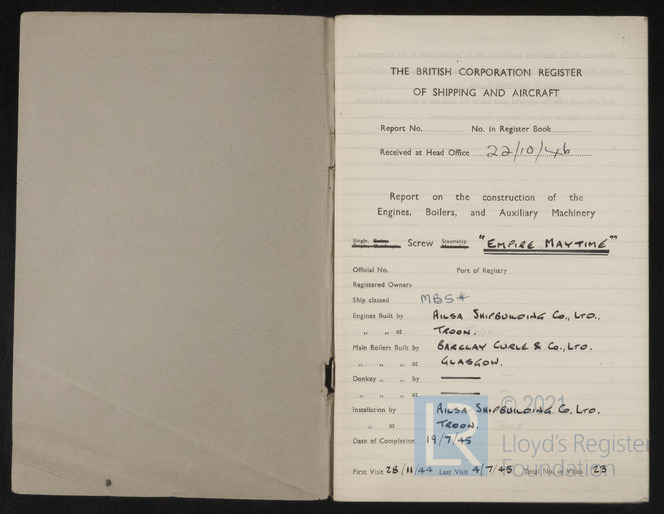 THE BRITISH CORPORATION REGISTER
OF SHIPPING AND AIRCRAFT
Report No. No. in Register Book
Received at Head Office 22/10/46
Report on the construction of the
Engines, Boilers, and Auxiliary Machinery
Single, Screw Steamship "EMPIRE MAYTIME"
Official No. Port of Registry
Registered Owners
Ship classed MBS*
Engines Built by AILSA SHIPBUILDING CO., LTD.,
„ „ at TROON.
Main Boilers Built by BARCLAY CURLE & CO., LTD.
„ „ „ at GLASGOW.
Donkey „ „ by
„ „ „ at
Installation by AILSA SHIPBUILDING CO. LTD.
„ at TROON.
Date of Completion 19/7/45
First Visit 28/11/44 Last Visit 4/7/45 Total No. of Visits 23
LR
© 2021
Lloyd's Register
Foundation